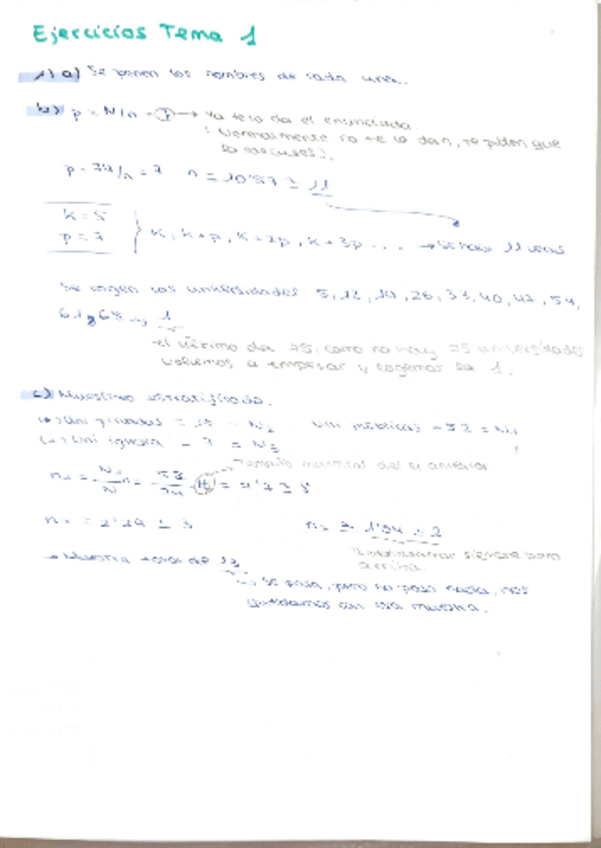 Ejercicios Tema 1
1) a) Se ponen los nombres de cada una.
b) p = N/n = 7 → Ya te lo da el enunciado.
(Normalmente no te lo dan, te piden que
lo calcules).
p = 74/n = 7 n = 10'57 ≃ 11
k = 5
p = 7 } k, k+p, k+2p, k+3p ... → Se hace 11 veces
Se cogen las universidades 5, 12, 19, 26, 33, 40, 47, 54,
61 y 68 → 1
el último da 75, como no hay 75 universidades
volvemos a empezar y cogemos la 1.
c) Muestreo estratificado.
Uni privadas = = N₂ Uni públicas = 52 = N₁
Uni iglesia = 7 = N₃
= 11 = ≃ 8
Tamaño muestral del ej anterior
= 2'24 ≃ 3 = 1'04 ≃ 2
Redondear siempre para
arriba.
→ Muestra total de 13
→ Se pasa, pero no pasa nada, nos
quedamos con esa muestra.